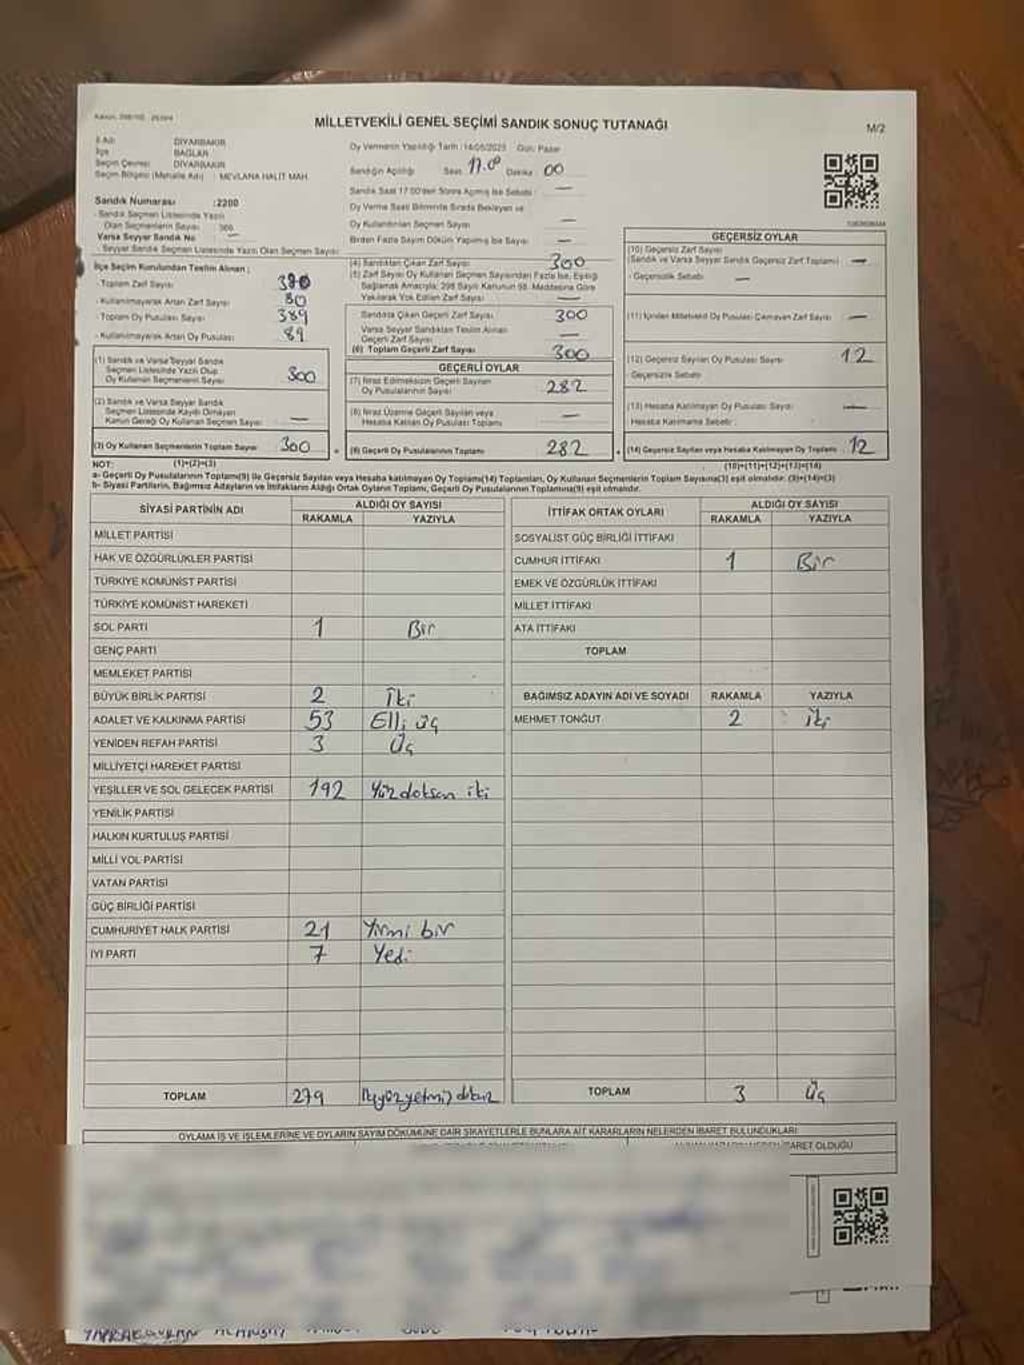 MİLLETVEKİLİ GENEL SEÇİMİ SANDIK SONUÇ TUTANAĞI
M/2
İl Adı DİYARBAKIR
İlçe BAĞLAR
Seçim Çevresi DİYARBAKIR
Seçim Bölgesi (Mahalle Adı) : MEVLANA HALİT MAH.
Sandık Numarası :2200
- Sandık Seçmen Listesinde Yazılı
Olan Seçmenlerin Sayısı
Varsa Seyyar Sandık No —
- Seyyar Sandık Seçmen Listesinde Yazılı Olan Seçmen Sayısı
Oy Vermenin Yapıldığı Tarih :14/05/2023 Gün: Pazar
Sandığın Açıldığı Saat 17.00 Dakika 00
Sandık Saat 17:00'den Sonra Açılmış İse Sebebi : —
Oy Verme Saati Bitiminde Sırada Bekleyen ve
Oy Kullandırılan Seçmen Sayısı —
Birden Fazla Sayım Döküm Yapılmış İse Sayısı —
İlçe Seçim Kurulundan Teslim Alınan ;
- Toplam Zarf Sayısı
- Kullanılmayarak Artan Zarf Sayısı 80
- Toplam Oy Pusulası Sayısı 389
- Kullanılmayarak Artan Oy Pusulası Sayısı 89
(1) Sandık ve Varsa Seyyar Sandık
Seçmen Listesinde Yazılı Olup
Oy Kullanan Seçmenlerin Sayısı 300
(2) Sandık ve Varsa Seyyar Sandık
Seçmen Listesinde Kaydı Olmayan
Kanun Gereği Oy Kullanan Seçmen Sayısı —
(3) Oy Kullanan Seçmenlerin Toplam Sayısı 300
(1)+(2)=(3)
(4) Sandıktan Çıkan Zarf Sayısı 300
(5) Zarf Sayısı Oy Kullanan Seçmen Sayısından Fazla İse, Eşitliği
Sağlamak Amacıyla; 298 Sayılı Kanunun 98. Maddesine Göre
Yakılarak Yok Edilen Zarf Sayısı —
Sandıkta Çıkan Geçerli Zarf Sayısı 300
Varsa Seyyar Sandıktan Teslim Alınan
Geçerli Zarf Sayısı —
(6) Toplam Geçerli Zarf Sayısı 300
GEÇERLİ OYLAR
(7) İtiraz Edilmeksizin Geçerli Sayılan
Oy Pusulalarının Sayısı 282
(8) İtiraz Üzerine Geçerli Sayılan veya
Hesaba Katılan Oy Pusulası Toplamı —
(9) Geçerli Oy Pusulalarının Toplamı 282
GEÇERSİZ OYLAR
(10) Geçersiz Zarf Sayısı
(Sandık ve Varsa Seyyar Sandık Geçersiz Zarf Toplamı) —
- Geçersizlik Sebebi —
(11) İçinden Milletvekili Oy Pusulası Çıkmayan Zarf Sayısı —
(12) Geçersiz Sayılan Oy Pusulası Sayısı 12
- Geçersizlik Sebebi
(13) Hesaba Katılmayan Oy Pusulası Sayısı —
Hesaba Katılmama Sebebi
(14) Geçersiz Sayılan veya Hesaba Katılmayan Oy Toplamı 12
(10)+(11)+(12)+(13)=(14)
NOT:
a- Geçerli Oy Pusulalarının Toplamı(9) ile Geçersiz Sayılan veya Hesaba katılmayan Oy Toplamı(14) Toplamları, Oy Kullanan Seçmenlerin Toplam Sayısına(3) eşit olmalıdır. (9)+(14)=(3)
b- Siyasi Partilerin, Bağımsız Adayların ve İttifakların Aldığı Ortak Oyların Toplamı, Geçerli Oy Pusulalarının Toplamına(9) eşit olmalıdır.
SİYASİ PARTİNİN ADI ALDIĞI OY SAYISI
RAKAMLA YAZIYLA
MİLLET PARTİSİ
HAK VE ÖZGÜRLÜKLER PARTİSİ
TÜRKİYE KOMÜNİST PARTİSİ
TÜRKİYE KOMÜNİST HAREKETİ
SOL PARTİ 1 Bir
GENÇ PARTİ
MEMLEKET PARTİSİ
BÜYÜK BİRLİK PARTİSİ 2 İki
ADALET VE KALKINMA PARTİSİ 53 Elli üç
YENİDEN REFAH PARTİSİ 3 Üç
MİLLİYETÇİ HAREKET PARTİSİ
YEŞİLLER VE SOL GELECEK PARTİSİ 192 Yüz doksan iki
YENİLİK PARTİSİ
HALKIN KURTULUŞ PARTİSİ
MİLLİ YOL PARTİSİ
VATAN PARTİSİ
GÜÇ BİRLİĞİ PARTİSİ
CUMHURİYET HALK PARTİSİ 21 Yirmi bir
İYİ PARTİ 7 Yedi
TOPLAM 279
İTTİFAK ORTAK OYLARI ALDIĞI OY SAYISI
RAKAMLA YAZIYLA
SOSYALİST GÜÇ BİRLİĞİ İTTİFAKI
CUMHUR İTTİFAKI 1 Bir
EMEK VE ÖZGÜRLÜK İTTİFAKI
MİLLET İTTİFAKI
ATA İTTİFAKI
TOPLAM
BAĞIMSIZ ADAYIN ADI VE SOYADI RAKAMLA YAZIYLA
MEHMET TONĞUT 2 İki
TOPLAM 3 Üç
OYLAMA İŞ VE İŞLEMLERİNE VE OYLARIN SAYIM DÖKÜMÜNE DAİR ŞİKAYETLERLE BUNLARA AİT KARARLARIN NELERDEN İBARET BULUNDUKLARI
İBARET OLDUĞU